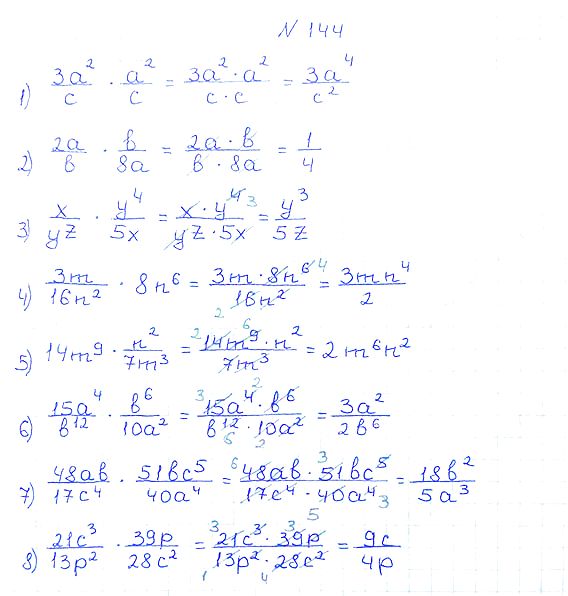 N 144
1) 3a²/c · a²/c = 3a²·a²/c·c = 3a⁴/c²
2) 2a/b · b/8a = 2a·b/b·8a = 1/4
3) x/yz · y⁴/5x = x·y⁴ 3/yz·5x = y³/5z
4) 3m/16n² · 8n⁶ = 3m·8n⁶ 4/16n² 2 = 3mn⁴/2
5) 14m⁹ · n²/7m³ = 2 14m⁹ 6·n²/7m³ = 2m⁶n²
6) 15a⁴/b¹² · b⁶/10a² = 3 15a⁴ 2·b⁶/b¹² 6·10a² 2 = 3a²/2b⁶
7) 48ab/17c⁴ · 51bc⁵/40a⁴ = 6 48ab·3 51bc⁵/17c⁴·40a⁴ 3 5 = 18b²/5a³
8) 21c³/13p² · 39p/28c² = 3 21c³·3 39p/1 13p²·4 28c² = 9c/4p